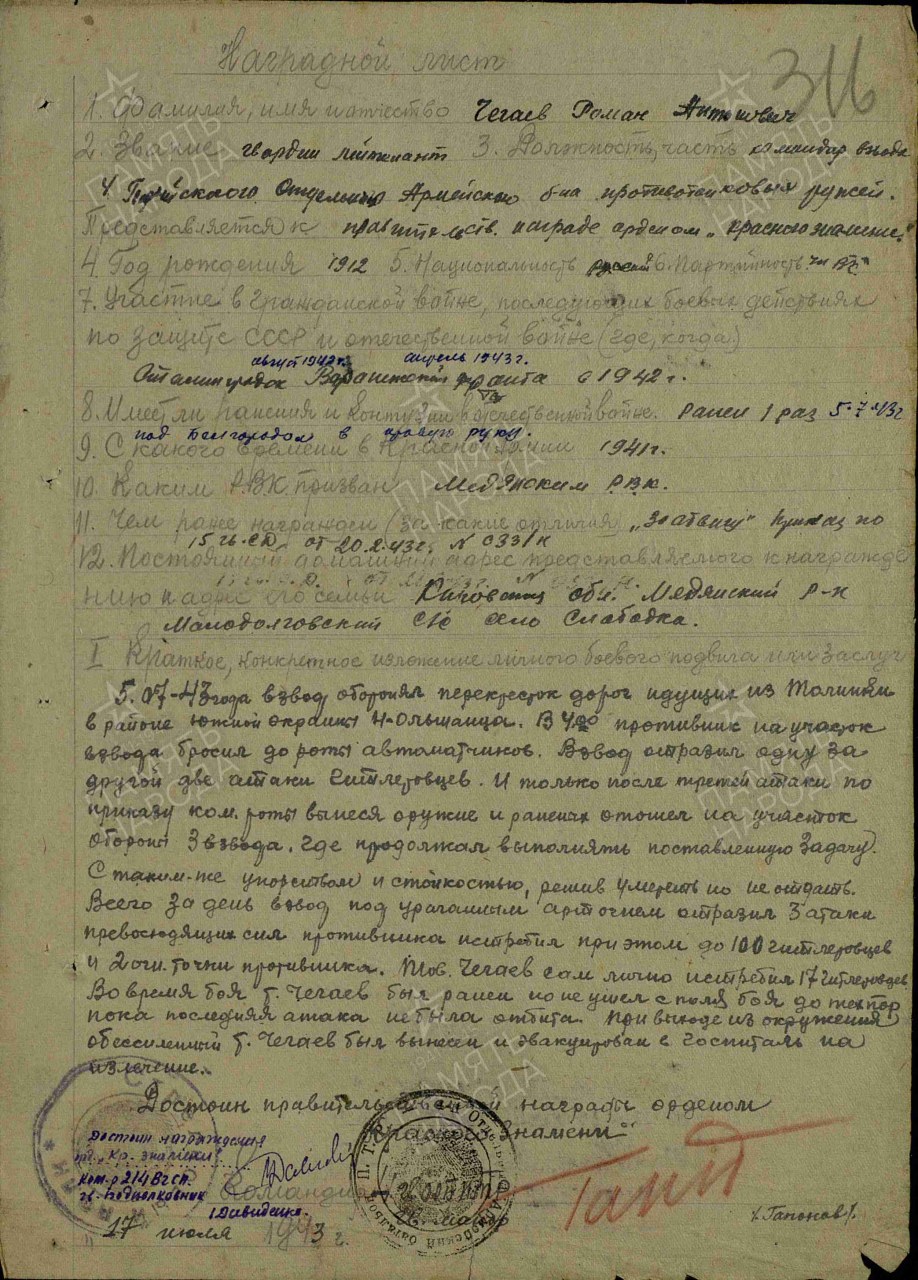 Наградной лист
311
1. Фамилия, имя и отчество Чегаев Роман Антонович
2. Звание гвардии лейтенант 3. Должность, часть командир взвода
4 Гвардейского Отдельного Армейского б-на противотанковых ружей.
Представляется к правительств. награде орденом „Красное знамение"
4. Год рождения 1912 5. Национальность русский 6. Партийность
7. Участие в гражданской войне, последующих боевых действиях
по защите СССР и отечественной войне (где, когда)
август 1942г. апрель 1943г.
Сталинградск Воронежский фронта с 1942г.
8. Имеет ли ранения и контузии в отечественной войне. Ранен 1 раз 5.7.43г
под Белгородом в правую руку.
9. С какого времени в Красной Армии 1941г.
10. Каким РВК призван Медянским Р.В.К.
11. Чем ранее награжден (за какие отличия) „За отвагу" Приказ по
15 гв. СД. от 20.2.43г. № 033/н
12. Постоянный домашний адрес представляемого к награжде
нию и адрес его семьи Кировская обл. Медянский р-н
Малодолговский с/с село Слабодка.
I Краткое, конкретное изложение личного боевого подвига или заслуг
5.07-43 года взвод оборонял перекресток дорог идущих из
в районе южной окраины Н-Ольшанца. В 4 00 противник на участок
взвода бросил до роты автоматчиков. Взвод отразил одну за
другой две атаки гитлеровцев. И только после третей атаки по
приказу ком. роты вынеся оружие и раненых отошел на участок
обороны 3 взвода. где продолжал выполнять поставленную задачу.
С таким-же упорством и стойкостью, решив умереть но не отдать.
Всего за день взвод под ураганным артогнем отразил 3 атаки
превосходящих сил противника истребил при этом до 100 гитлеровцев
и 2 огн. точки противника. Тов. Чегаев сам лично истребил 17 гитлеровцев
Во время боя т. Чегаев был ранен но не ушел с поля боя до тех пор
пока последняя атака не была отбита. При выходе из окружения
обессиленный т. Чегаев был вынесен и эвакуирован в госпиталь на
излечение.
Достоин правительственной награды орденом
„Красного Знамени"
Достоин награждения
орд. „Кр. знамени"
ком-р 214 гв сп.
гв. подполковник
/Давиденко.
Командир
гв. майор
/Гапонов/.
17 июля 1943 г.
ПАМЯТЬ НАРОДА